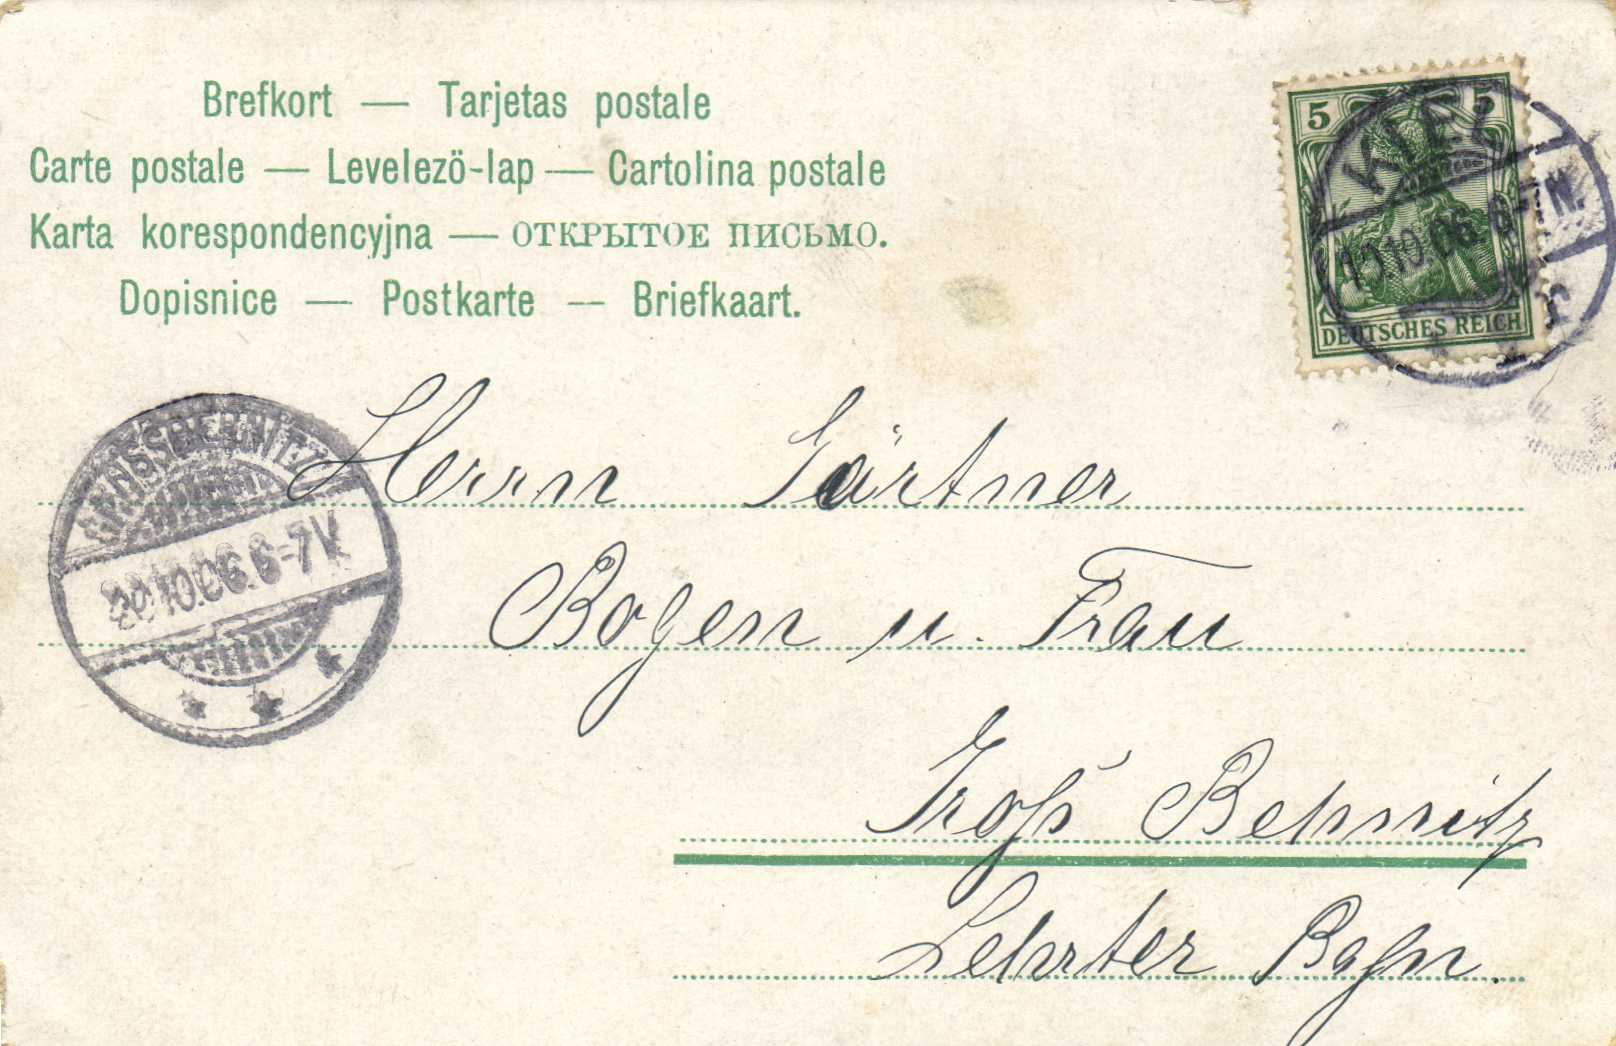 Brefkort — Tarjetas postale
Carte postale — Levelezö-lap — Cartolina postale
Karta korespondencyjna — ОТКРЫТОЕ ПИСЬМО.
Dopisnice — Postkarte — Briefkaart.
5 5
DEUTSCHES REICH
KIEZ
10.06. 6-7N.
GROSSBEHNITZ
10.06. 6-7V
Herrn Gärtner
Bogen u. Frau
Groß Behnitz
Lehrter Bahn.